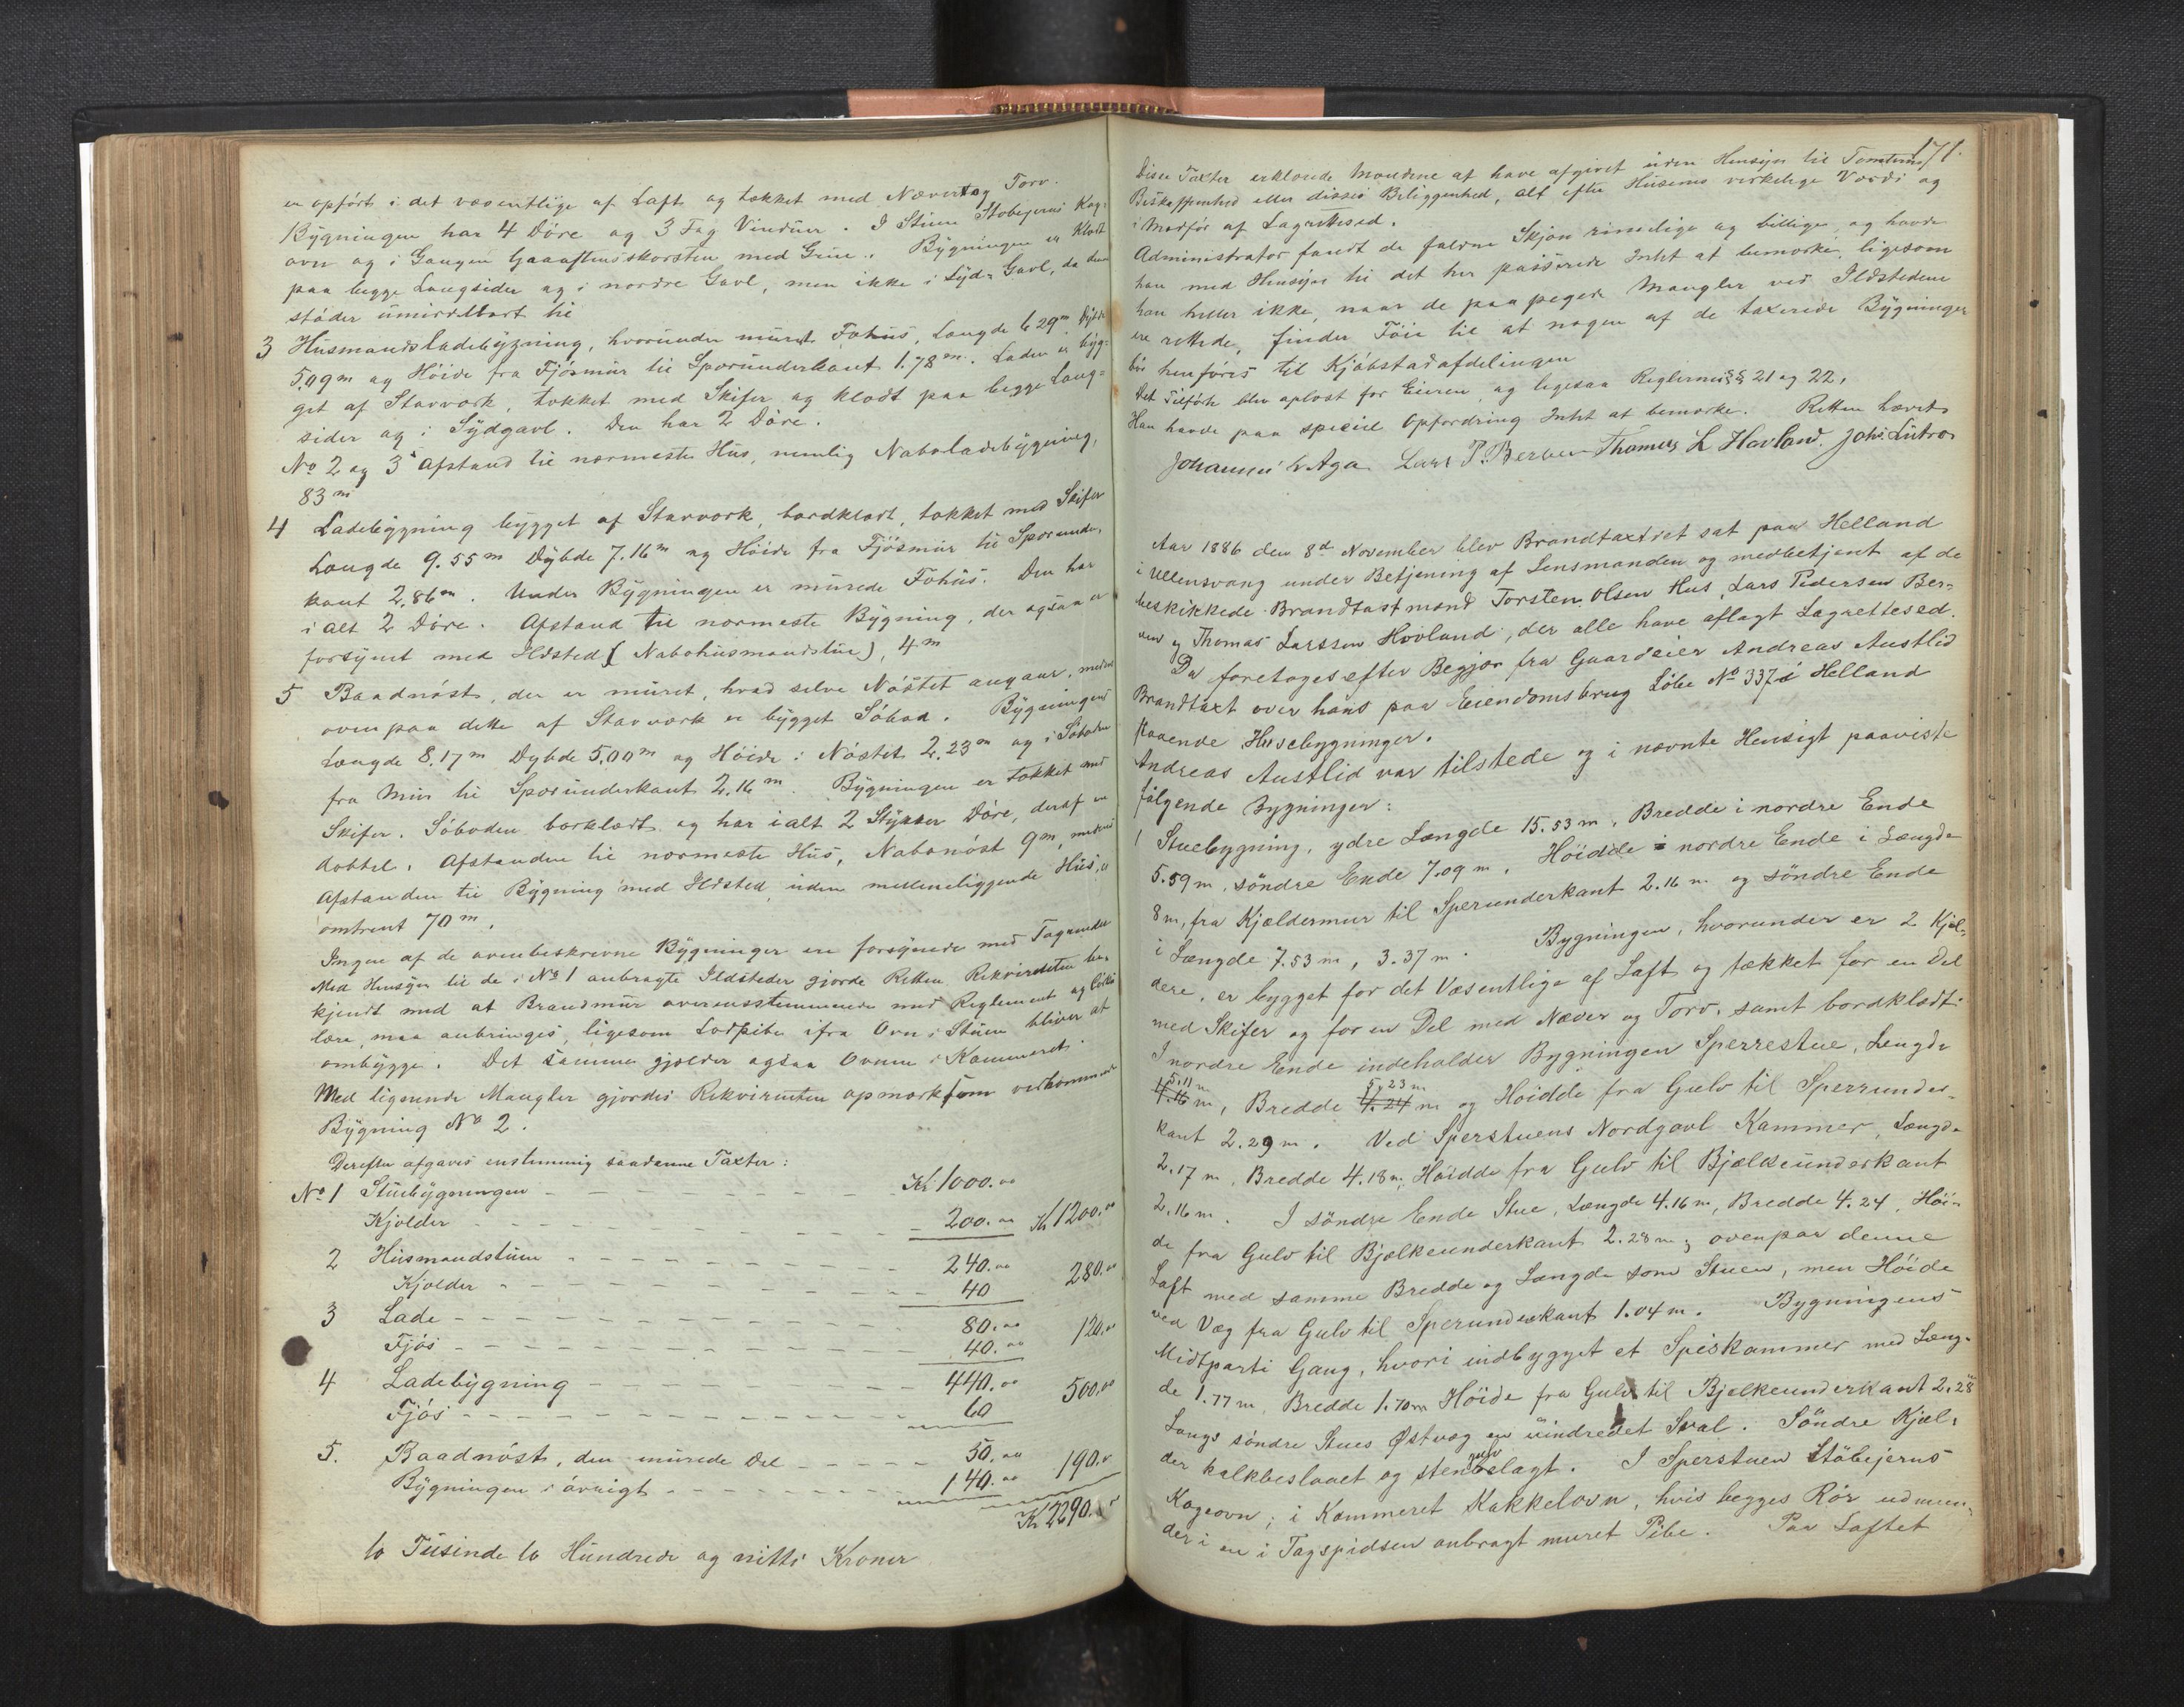 er opført i det væsentlige af Laft og tækket med Næver og Torv.
Bygningen har 4 Døre og 3 Fag Vinduer. I Stuen Støbejerns Kog-
ovn og i Gangen Gaaaftensskorsten med Grue. Bygningen er klædt
paa begge Langsider og i nordre Gavl, men ikke i Syd-Gavl, da den
støder umiddelbart til
3 Husmandsladebygning, hvorunder muret Føhus, Længde 6.29m, Dybde
5.09m og Høide fra Fjøsmur til Sporunderkant 1.78m. Laden er byg-
get af Stavværk, tækket med Skifer og klædt paa begge Lang-
sider og i Sydgavl. Den har 2 Døre.
No 2 og 3's Afstand til nærmeste Hus, nemlig Naboladebygning,
83m
4 Ladebygning bygget af Stavværk, bordklædt, tækket med Skifer
Længde 9.55m Dybde 7.16m og Høide fra Fjøsmur til Sporunder-
kant 2.86m. Under Bygningen er murede Føhus. Den har
i alt 2 Døre. Afstand til nærmeste Bygning, der ogsaa er
forsynet med Ildsted (Nabohusmandstue), 4m
5 Baadnøst, der er muret, hvad selve Nøstet angaar, medens
ovenpaa dette af Stavværk er bygget Søbod. Bygningens
Længde 8.17m Dybde 5.00m og Høide i Nøstet 2.23m og i Søboden
fra Mur til Sporunderkant 2.16m. Bygningen er tækket med
Skifer. Søboden bordklædt og har ialt 2 Stykker Døre, deraf en
dobbel. Afstanden til nærmeste Hus, Nabonøst 9m, medens
Afstanden til Bygning med Ildsted, uden mellemliggende Hus, er
omtrent 70m.
Ingen af de ovenbeskrevne Bygninger ere forsynede med Tagrender
Med Hensyn til de i No 1 anbragte Ildsteder gjorde Retten Rekvirenten be-
kjendt med at Brandmur overensstemmende med Reglement og
lære, maa anbringes, ligesom Lodpibe ifra Ovn i Stuen bliver at
ombygge. Det samme gjælder ogsaa Ovnen i Kammeret.
Med lignende Mangler gjordes Rekvirenten opmærksom vedkommende
Bygning No 2.
Derefter afgaves enstemmig saadanne Taxter:
No 1 Stuebygningen - - - Kr 1000.00
Kjelder - - - 200.00 Kr 1200.00
2 Husmandstuen - - - 240.00
Kjelder - - - 40 280.00
3 Lade - - - 80.00
Fjøs - - - 40.00 120.00
4 Ladebygning - - - 440.00
Fjøs - - - 60 500.00
5. Baadnøst, den murede Del - - - 50.00
Bygningen i øvrigt - - - 140.00 190.00
Kr 2290.00
to Tusinde to Hundrede og nitti Kroner
171.
Disse Taxter erklærede Mændene at have afgivet uden Hensyn til Tomternes
Beskaffenhed eller disses Beliggenhed, alt efter Husenes virkelige Værdi og
i Medfør af Lagrettesed.
Administrator fandt de faldne Skjøn rimelige og billige, og havde
han med Hensyn til det her passerede Intet at bemærke, ligesom
han heller ikke, naar de paapegede Mangler ved Ildstederne
ere rettede, finder Føie til at nogen af de taxerede Bygninger
bør henføres til Kjøbstadafdelingen
Det Tilførte blev oplæst for Eieren og ligesaa Reglernes §§ 21 og 22.
Han havde paa speciel Opfordring Intet at bemærke. Retten hævet.
Johannes L Aga Lars P. Berven Thomas L Hovland. Johs. Lutro
Aar 1886 den 8de November blev Brandtaxtret sat paa Helland
i Ullensvang under Betjening af Lensmanden og medbetjent af de
beskikkede Brandtaxtmænd Torsten Olsen Hus, Lars Pedersen Ber-
ven og Thomas Larssen Hovland, der alle have aflagt Lagrettesed.
Da foretoges efter Begjær fra Gaardeier Andreas Austlid
Brandtaxt over hans paa Eiendomsbrug Løbe No 337a Helland
staaende Husebygninger.
Andreas Austlid var tilstede og i nævnte Hensigt paaviste
følgende Bygninger:
1 Stuebygning, ydre Længde 15.53m, Bredde i nordre Ende
5.59m, søndre Ende 7.09m. Høidde i nordre Ende i Længde
8m, fra Kjældermur til Sperunderkant 2.16m og søndre Ende
i Længde 7.53m, 3.37m. Bygningen, hvorunder er 2 Kjæl-
dere, er bygget for det Væsentlige af Laft og tækket for en Del
med Skifer og for en Del med Næver og Torv, samt bordklædt.
I nordre Ende indeholder Bygningen Sperrestue, Længde
5.11m 5.23m
4.16m, Bredde 4.24m og Høidde fra Gulv til Sperrunder-
kant 2.29m. Ved Sperstuens Nordgavl Kammer, Længde
2.17m, Bredde 4.18m, Høidde fra Gulv til Bjælkeunderkant
2.16m. I søndre Ende Stue, Længde 4.16m, Bredde 4.24, Høi-
de fra Gulv til Bjælkeunderkant 2.28m, ovenpaa denne
Laft med samme Bredde og Længde som Stuen, men Høide
ved Væg fra Gulv til Sperunderkant 1.04m. Bygningens
Midtparti Gang, hvori indbygget et Spiskammer med Læng-
de 1.77m, Bredde 1.70m Høide fra Gulv til Bjælkeunderkant 2.28
Langs søndre Stues Østvæg en uindredet Sval. Søndre Kjæl-
gulv
der kalkbeslaaet og stenbelagt. I Sperstuen Støbejerns
Kogeovn; i Kammeret Kakkelovn, hvis begges Rør udmun-
der i en i Tagspidsen anbragt muret Pibe. Paa Laftet